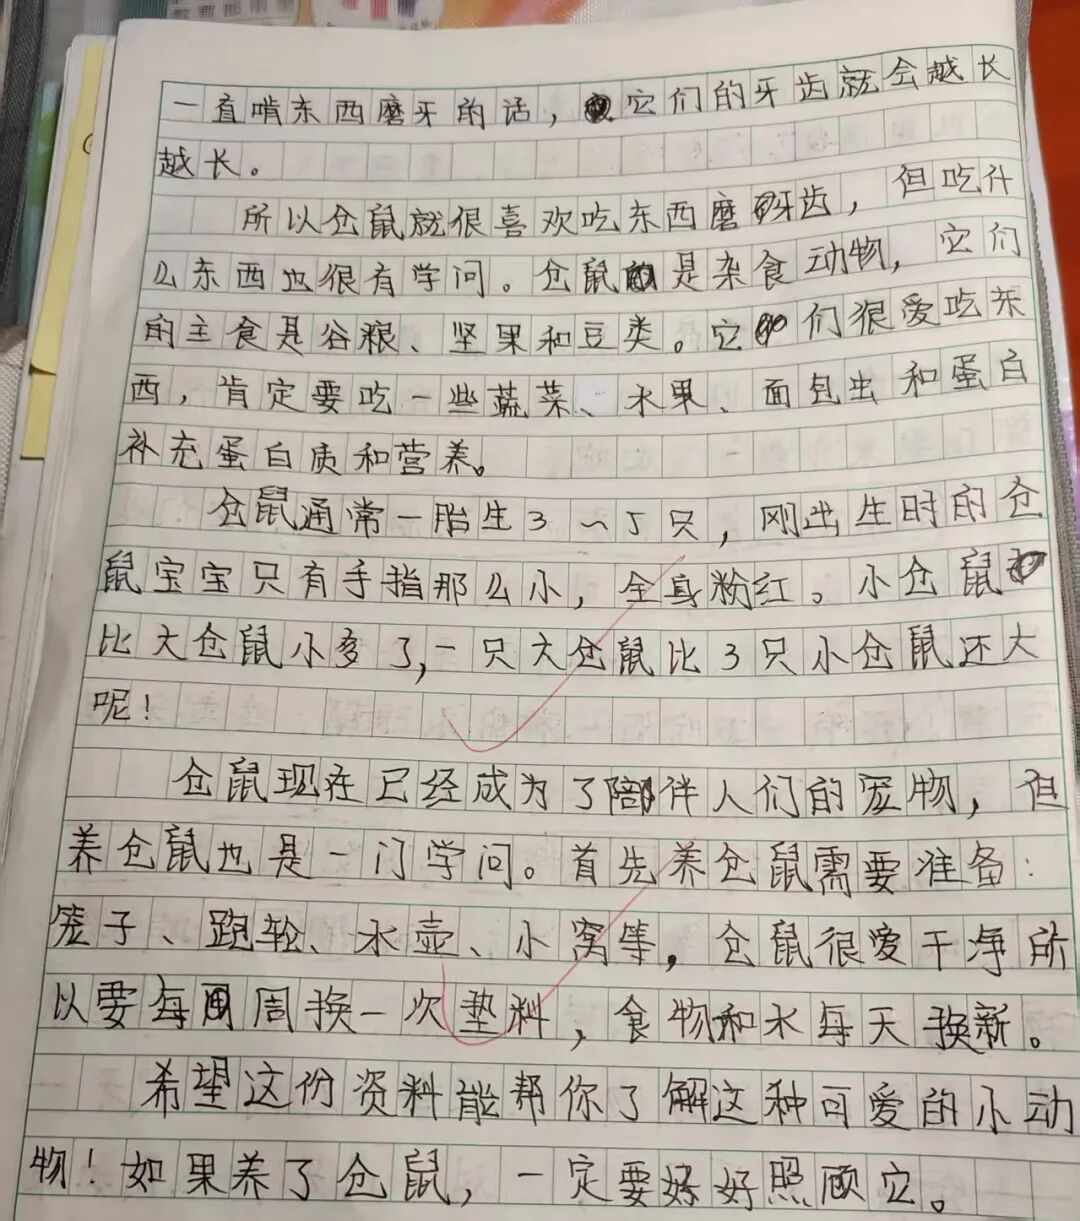 一直啃东西磨牙的话，它们的牙齿就会越长
越长。
所以仓鼠就很喜欢吃东西磨牙齿，但吃什
么东西也很有学问。仓鼠是杂食动物，它们
的主食是谷粮、坚果和豆类。它们狠爱吃东
西，肯定要吃一些蔬菜、水果、面包虫和蛋白
补充蛋白质和营养。
仓鼠通常一胎生3~5只，刚出生时的仓
鼠宝宝只有手指那么小，全身粉红。小仓鼠
比大仓鼠小多了，一只大仓鼠比3只小仓鼠还大
呢！
仓鼠现在已经成为了陪伴人们的宠物，但
养仓鼠也是一门学问。首先养仓鼠需要准备：
笼子、跑轮、水壶、小窝等，仓鼠很爱干净所
以要每周换一次垫料，食物和水每天换新。
希望这份资料能帮你了解这种可爱的小动
物！如果养了仓鼠，一定要好好照顾它。